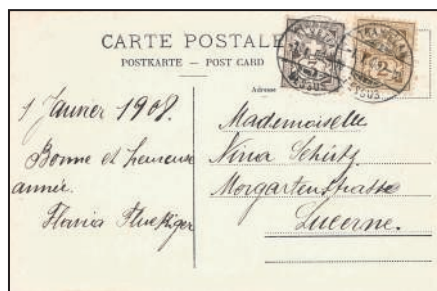 CARTE POSTALE
POSTKARTE — POST CARD
Adresse
1 Janvier 1908.
Bonne et heureuse
année.
Flavia Fluekiger
Mademoiselle
Nina Schütz
Morgartenstrasse
Lucerne.
TRAMELAN
DESSUS
3
TRAMELAN
2